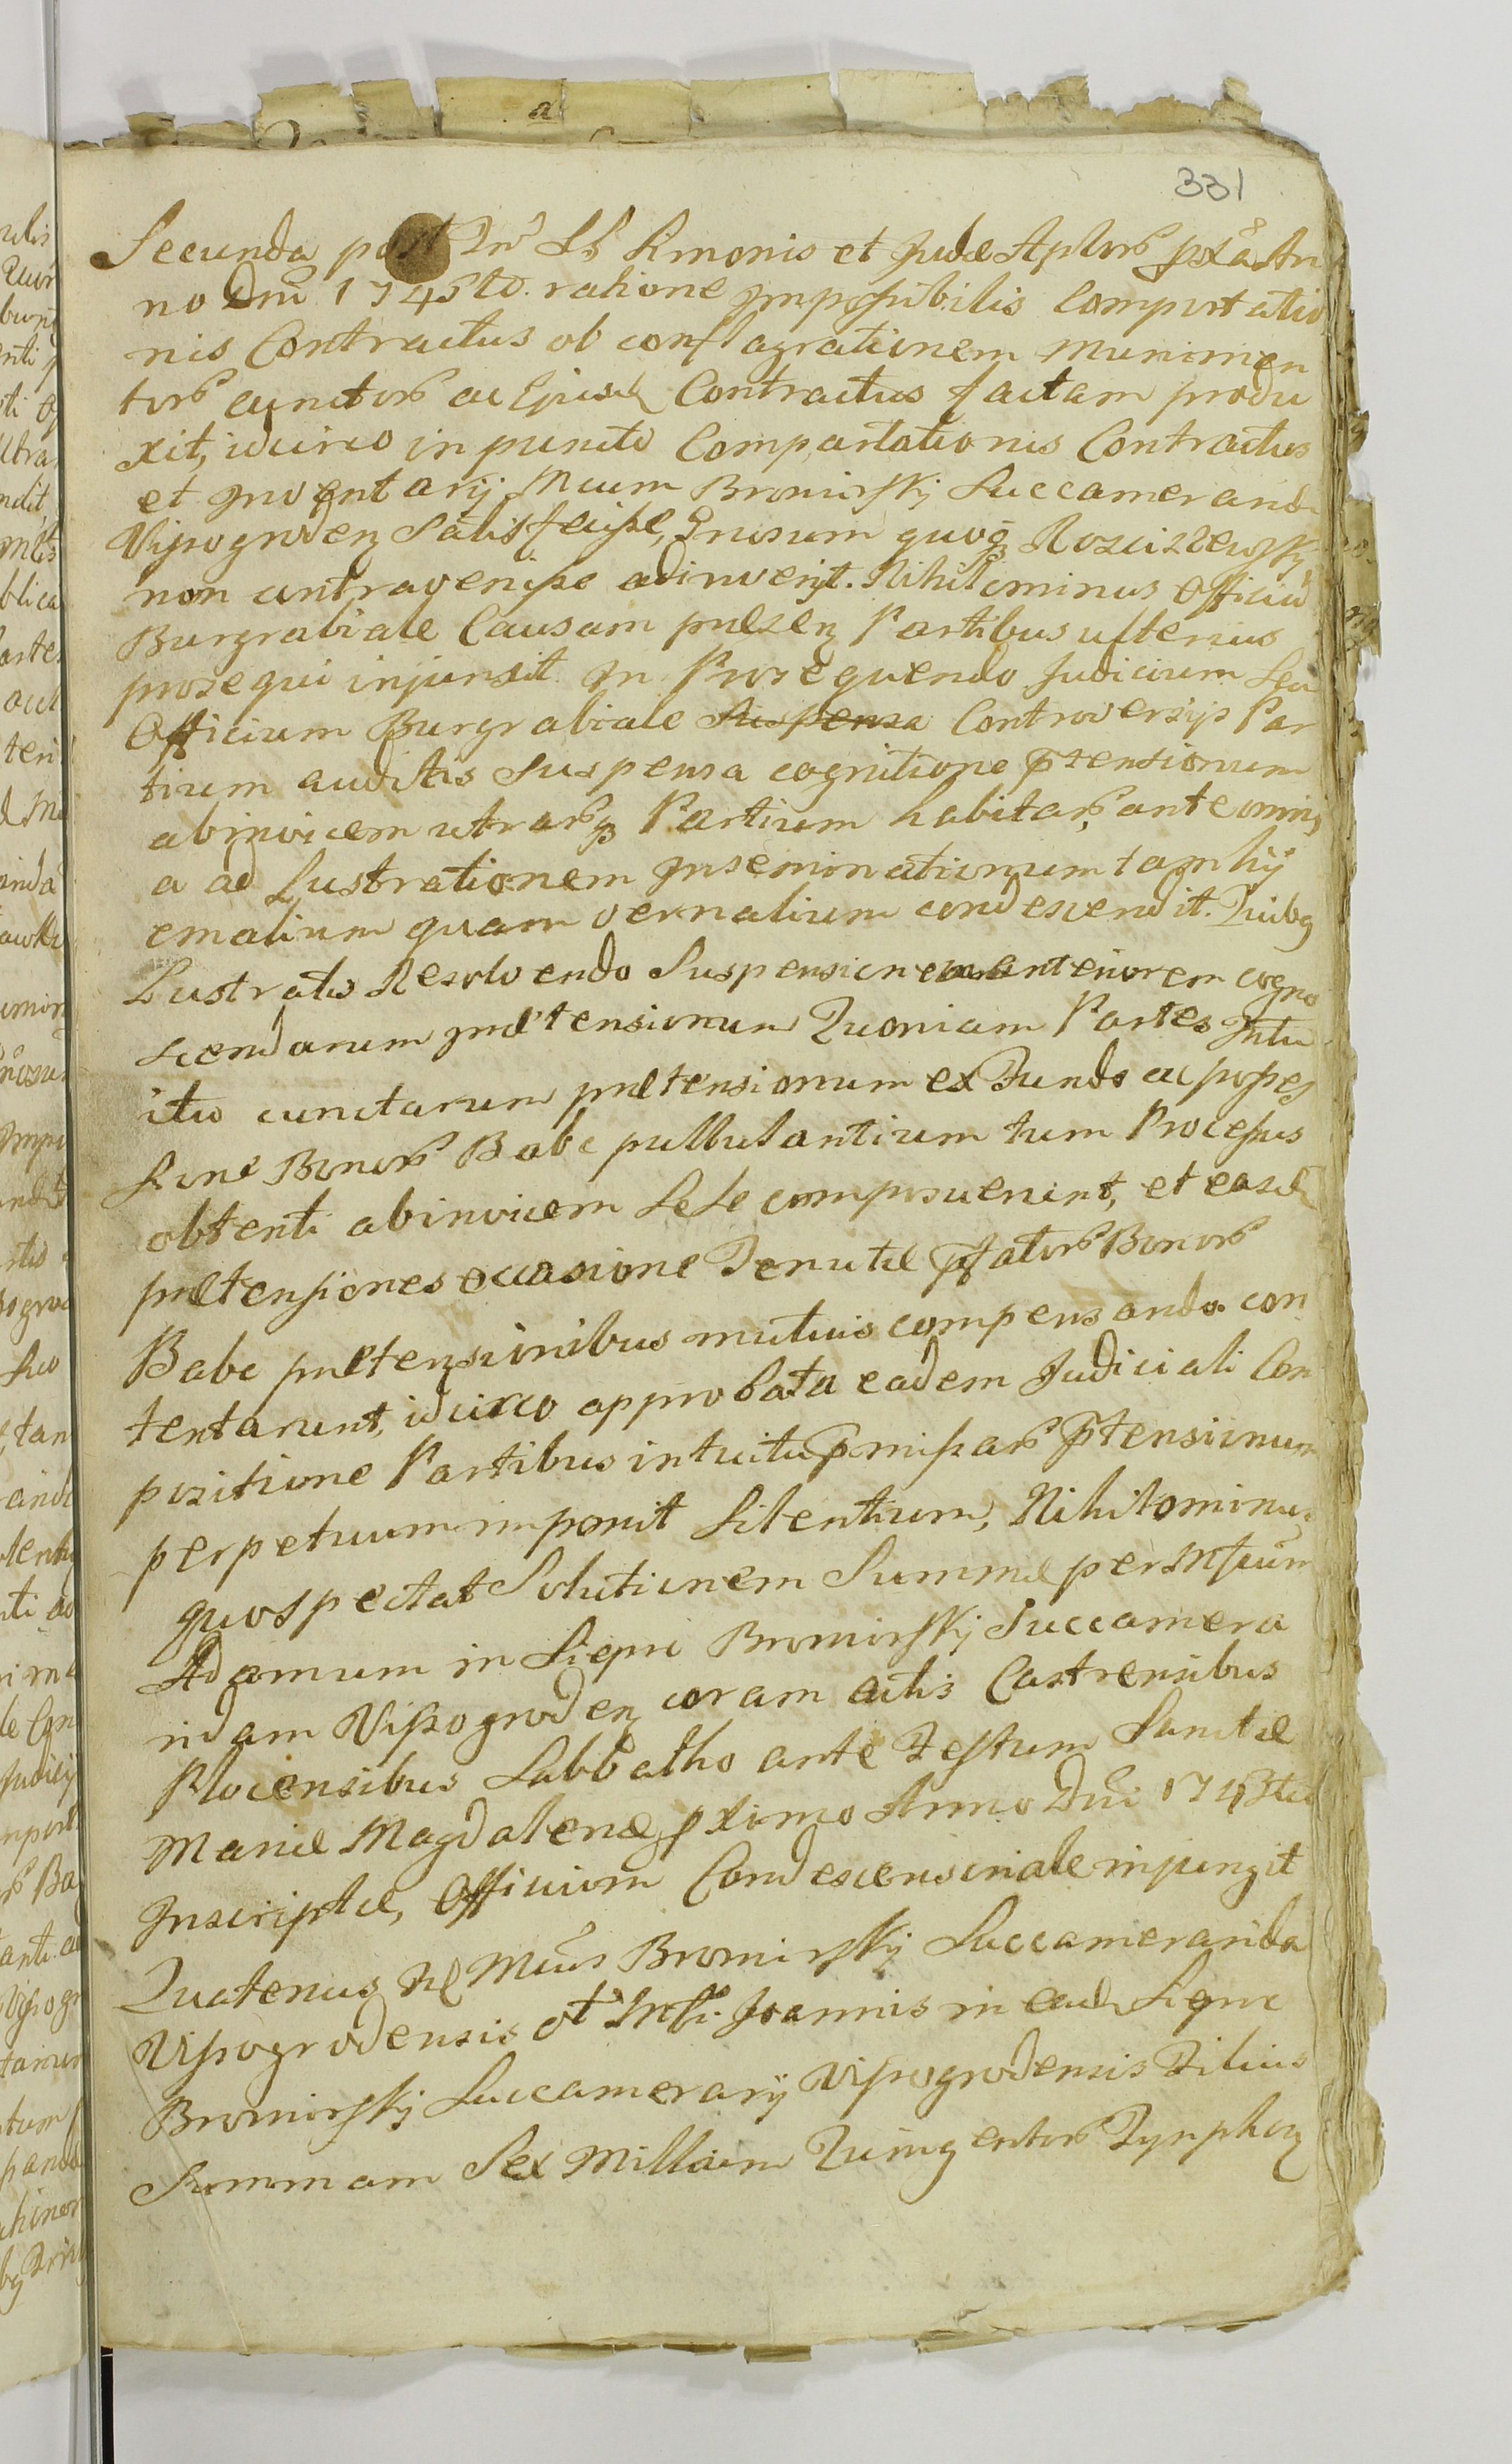 a
331
Secunda post In᷑ SS Simonis et Judæ Aplor᷑ pxâ An
no Dni 1745to. ratione impossibilis Comportatio
nis Contractus ob conflagrationem munimen
tor᷑ cunctor᷑ ac Ejusd Contractus factam produ
xit, idcirco in puncto Comportationis Contractus
et Inventarij Mcum Bromirskj Succamerand
Vissogrodenz Satisfecisse, Gnosum quoqz Rosciszewskj
non contravenisse adinvenit. Nihilominus Officiũ
Burgrabiale Causam præsenz Partibus ulterius
prosequi injunxit In Prosequendo Judicium Seu
Officium Burgrabiale Suspensa Controversijs Par
tium auditis Suspensa cognitione ptensionum
abinvicem utrarqz Partium habitar᷑, ante omni
a ad Lustrationem Inseminationum tam hij
emalium quam vernalium condescendit. Quibg
Lustratis Resolvendo Suspensionem anteriorem cogno
scendarum prætensionum Quoniam Partes Intu
itu cunctarum prætensionum ex Fundo ac posses
sione Bonor᷑ Babe pullulantium tum Processus
obtenti abinvicem Sese composuerint, et easd
prætensiones occasione Tenutæ pfator᷑ Bonor᷑
Babe prætensionibus mutuis compensando con
tentarunt, idcirco approbata eadem Judiciali Com
positione Partibus intuitu pmissar᷑ ptensionum
perpetuum imponit Silentium, Nihilominus
quospectat Solutionem Summæ per Mfcum
Adamum in Siepre Bromirskj Succamera
ndam Vissogrodenz coram actis Castrensibus
Plocensibus Sabbatho ante Festum Sanctæ
Mariæ Magdalenæ pximo Anno Dni 1743tio
Inscriptæ, Officium Condescensoriale injungit
Quatenus Mcus Bromirskj Succameranda
Vissogrodensis ol Mfci Joannis in ead Siepre
Bromirskj Succamerarij Vissogrodensis Filius
Summam Sex Millium Quingentor᷑ Tynphonz